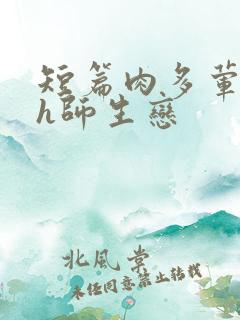 短篇肉多葷
h師生戀
北風棠
未经同意禁止转载